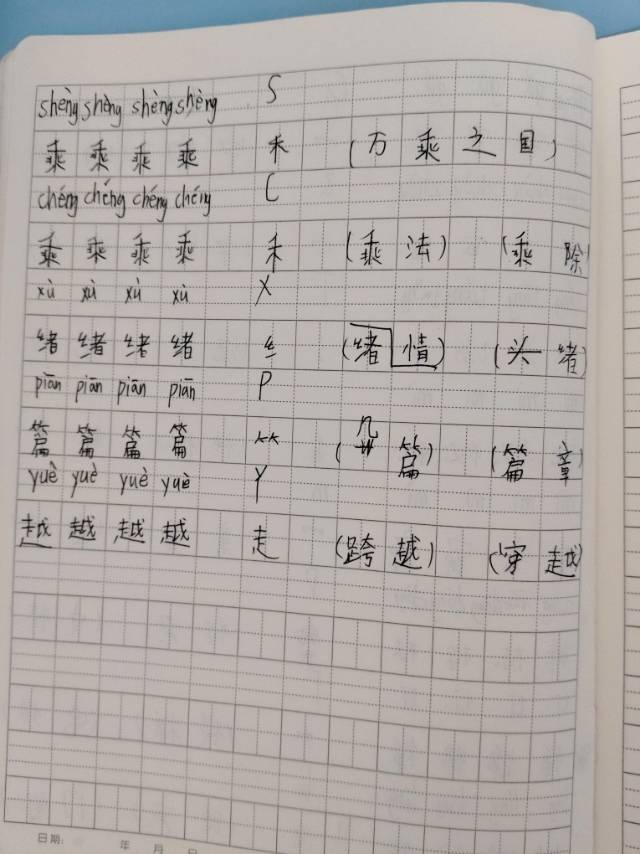 shèng shèng shèng shèng S
乘 乘 乘 乘 禾 (万 乘 之 国)
chéng chéng chéng chéng C
乘 乘 乘 乘 禾 (乘 法) (乘 除
xù xù xù xù X
绪 绪 绪 绪 纟 (绪 情) (头 绪)
piān piān piān piān P
篇 篇 篇 篇 ⺮ (几 篇) (篇 章)
yuè yuè yuè yuè Y
越 越 越 越 走 (跨 越) (穿 越)
日期: 年 月 日